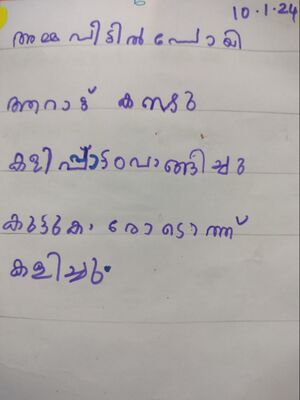 10.1.24
അമ്മവീടിൽപോയി
ആറാട് കണ്ടു
കളിപ്പാട്ടംവാങ്ങിച്ചു
കുട്ടുകാരോടൊത്ത്
കളിച്ചു.